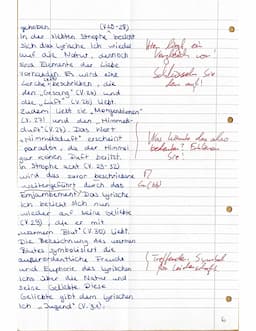 gehoben. (V.25-28)
In der siebten Strophe bezieht
sich das lyrische Ich wieder
auf die Natur, dennoch
sind Elemente der Liebe
vorhanden. Es wird eine
Lerche beschrieben, die
den „Gesang" (V.26) und
die „Luft" (V.26) liebt.
Zudem liebt sie „Morgenblumen"
(V.27) und den „Himmels
duft" (V.28). Das Wort
„Himmelsduft" erscheint
paradox, da der Himmel
gar keinen Duft besitzt.
In Strophe acht (V.29-32)
wird das zuvor beschriebene
weitergeführt durch das
Enjambement. Das lyrische
Ich bezieht sich nun
wieder auf seine Geliebte
(V.29), die er mit
„warmem Blut" (V.30) liebt.
Die Bezeichnung des warmen
Blutes symbolisiert die
außerordentliche Freude
und Euphorie des lyrischen
Ichs über die Natur und
seine Geliebte. Diese
Geliebte gibt dem lyrischen
Ich „Jugend" (V.31),
Hier liegt ein
Vergleich vor!
Schlüsseln Sie
den auf!
Was könnte das also
bedeuten? Erklären
Sie!
Treffendes Symbol
für Leidenschaft
6